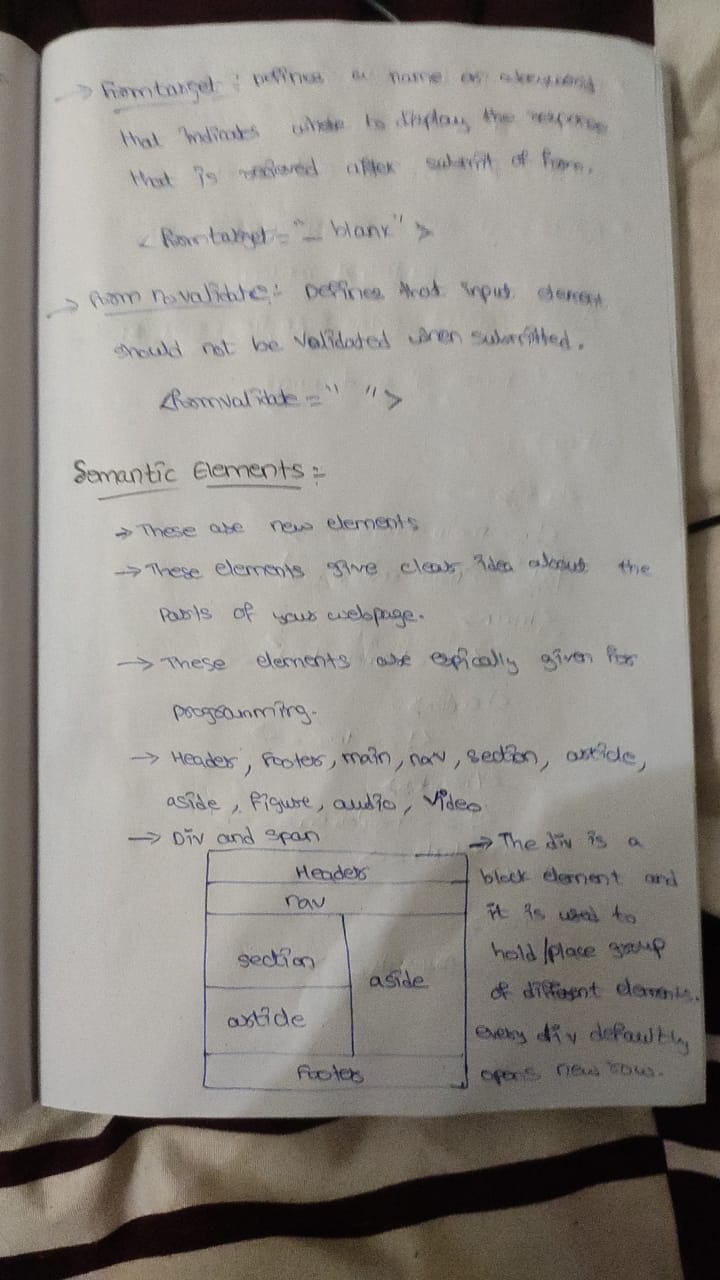 → Formtarget : Defines a name or a keyword
that indicates where to display the response
that is recieved after submit of form.
< Formtarget = "_ blank" >
→ Form novalidate :- Defines that input element
should not be validated when submitted.
<Formvalidate = " ">
Semantic Elements :-
→ These are new elements
→ These elements give clear idea about the
Parts of your webpage.
→ These elements are espically given for
programming.
→ Header, Footer, main, nav, section, article,
aside, figure, audio, video
→ Div and span
Header
nav
section
aside
article
Footer
→ The div is a
block element and
it is used to
hold/place group
of different elements.
every div defaultly
opens new row.